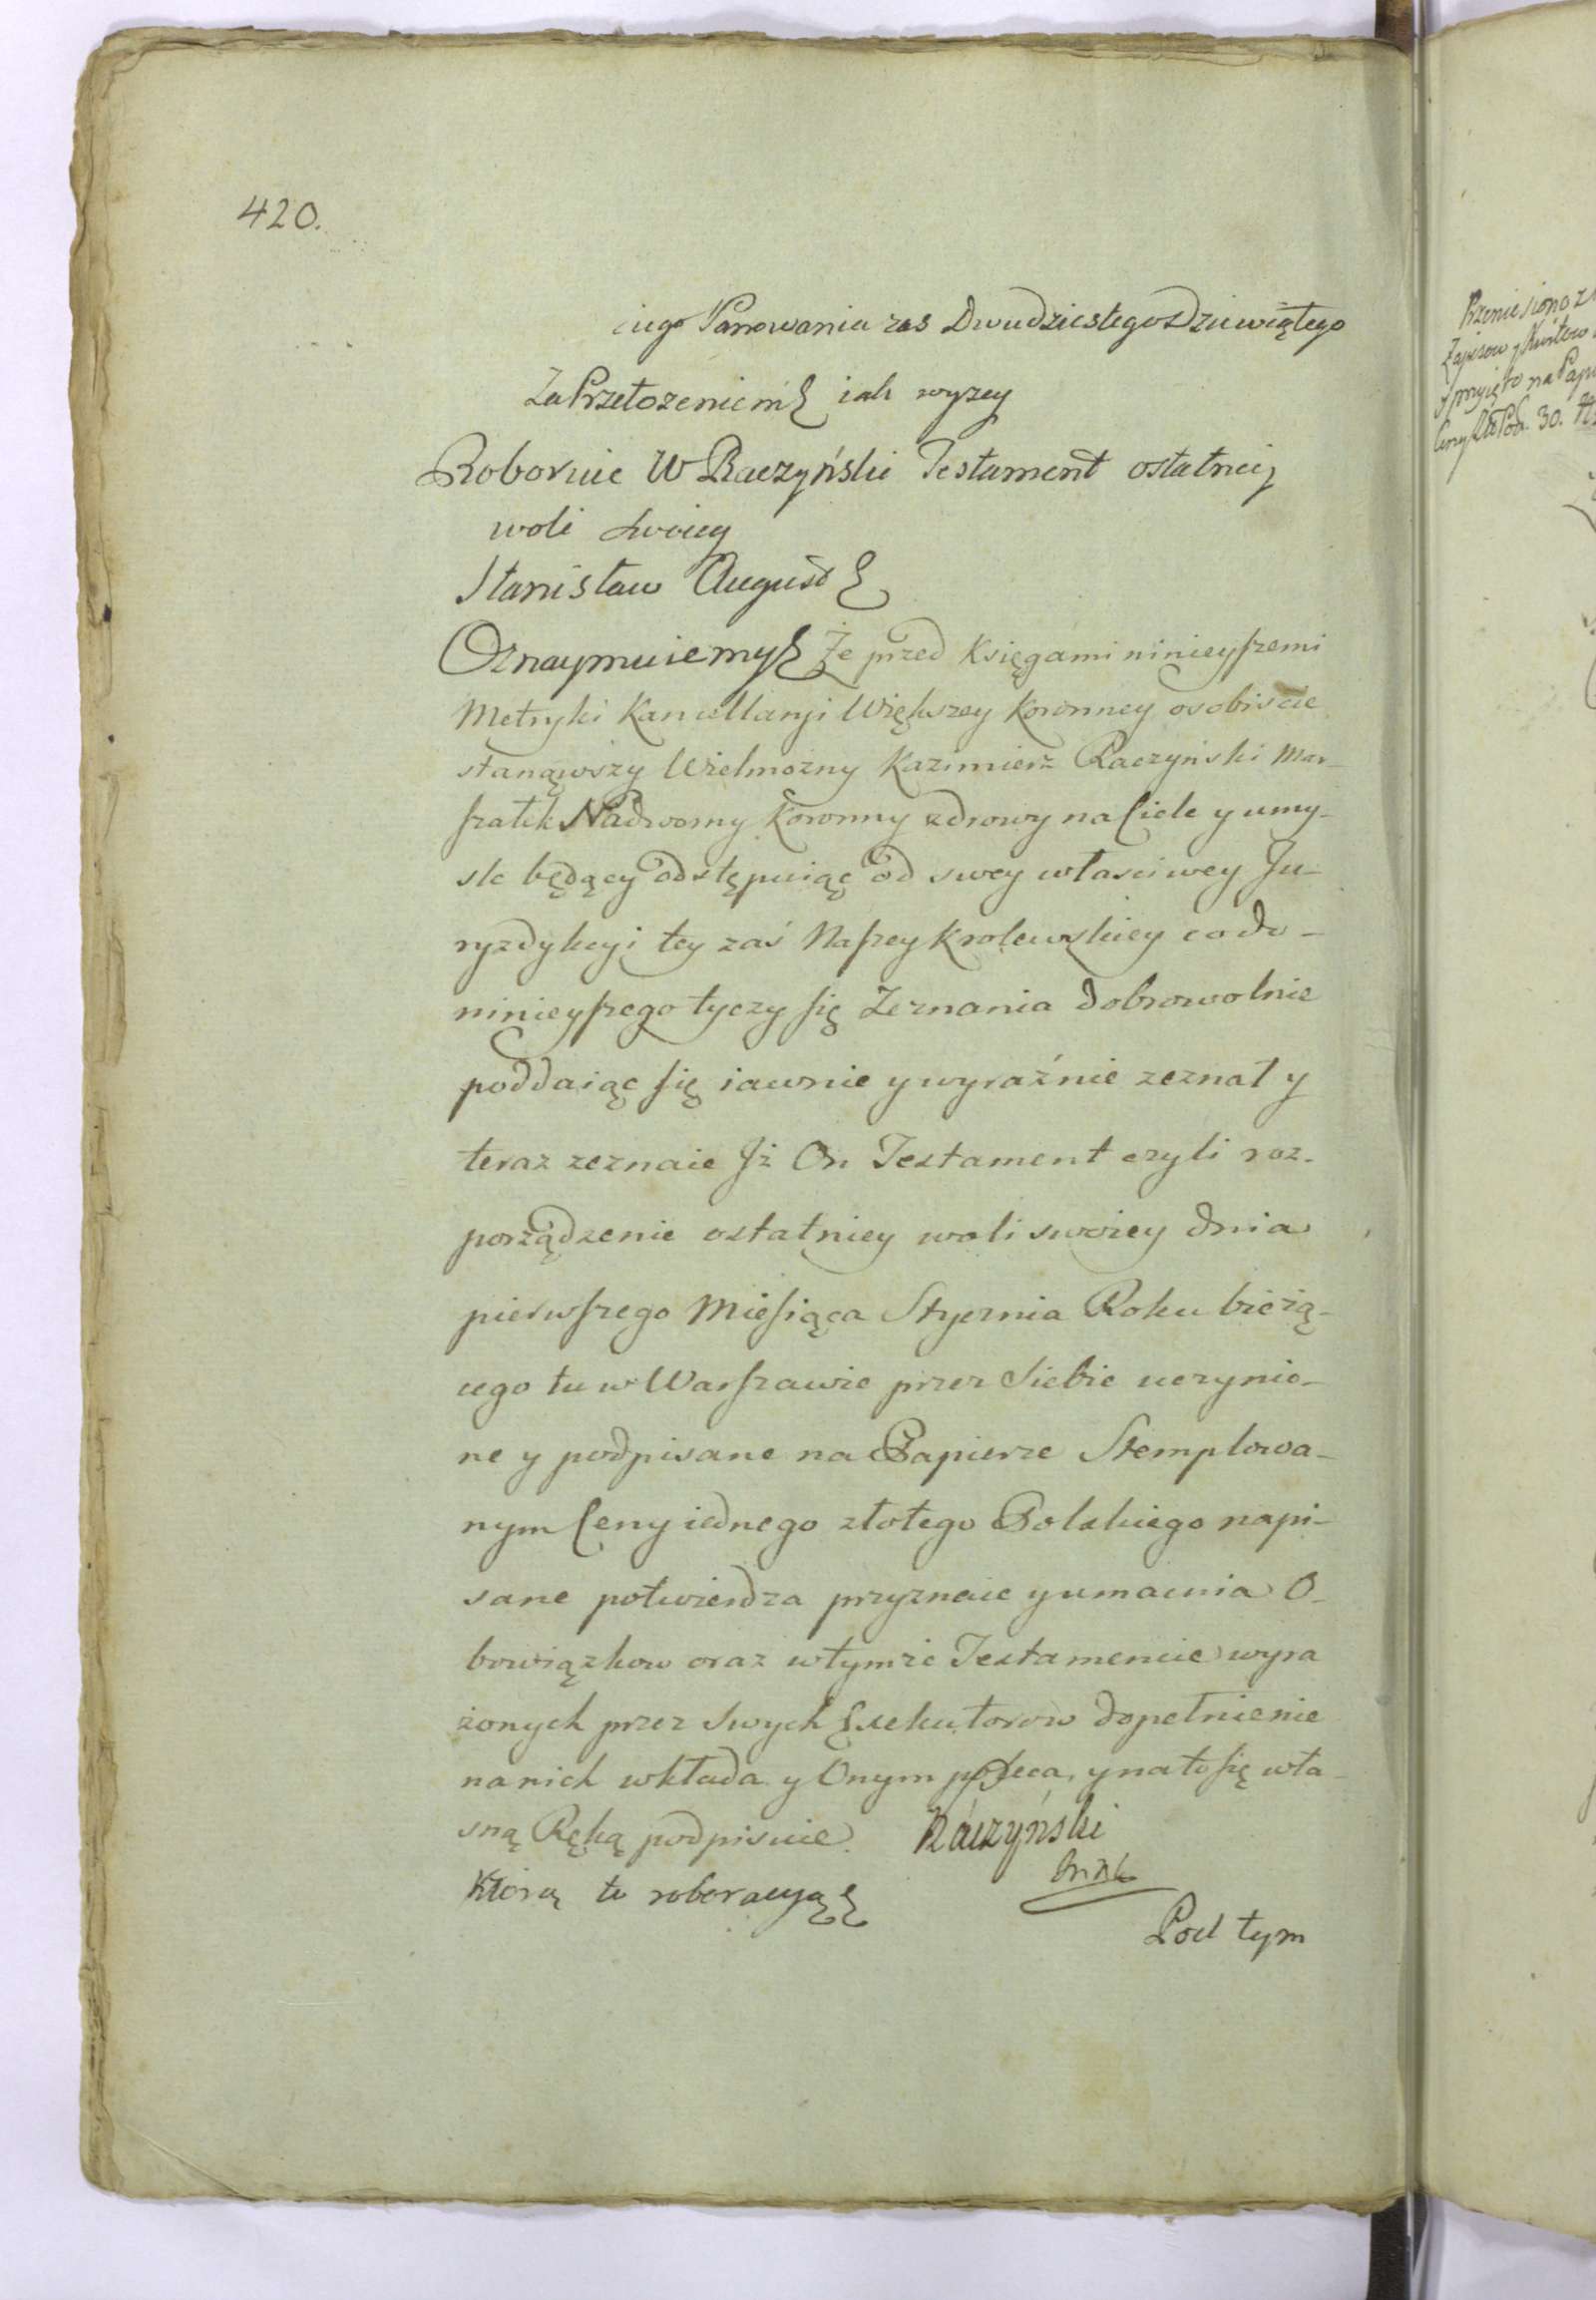 420.
iego Panowania zas Dwudziestego Dziewiątego
Za Przełozeniem iak wyzey
Roboruie W Raczyński Testament ostatniey
woli swoiey
Stanisław August
Oznaymuiemy Że przed Księgami ninieyszemi
Metryki Kancellaryi Większey Koronney osobiscie
stanąwszy Wielmozny Kazimierz Raczyński Mar-
szałek Nadworny Koronny zdrowy na Ciele y umy-
sle będący odstępuiąc od swey własciwey Ju-
ryzdykcyi tey zaś Naszey Krolewskiey co do-
ninieyszego tyczy się Zeznania dobrowolnie
poddaiąc się iawnie y wyraźnie zeznał y
teraz zeznaie Jż On Testament czyli roz-
porządzenie ostatniey woli swoiey dnia
pierwszego Miesiąca Stycznia Roku bieżą-
cego tu w Warszawie przez Siebie uczynio-
ne y podpisane na Papierze Stemplowa-
nym Ceny iednego złotego Polskiego napi-
sane potwierdza przyznaie y umacnia O-
bowiązkow oraz w tymże Testamencie wyra
żonych przez swych Exekutorow dopełnienie
na nich wkłada y Onym poleca, y na to się wła-
sną Ręką podpisuie. Raczyński
Którą to roboracyą
Pod tym
Przeniesiono z
Zapisow y Kwitow
y przyięto na Papi
Ceny 30.